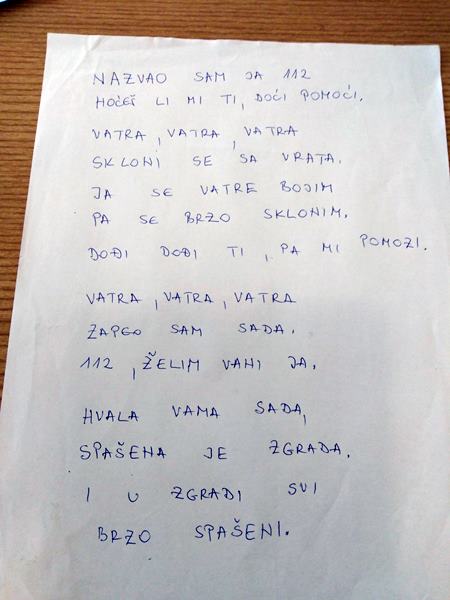 NAZVAO SAM JA 112
HOĆEŠ LI MI TI, DOĆI POMOĆI.
VATRA, VATRA, VATRA
SKLONI SE SA VRATA.
JA SE VATRE BOJIM
PA SE BRZO SKLONIM.
DOĐI DOĐI TI, PA MI POMOZI.
VATRA, VATRA, VATRA
ZAPEO SAM SADA.
112, ŽELIM VANI JA.
HVALA VAMA SADA,
SPAŠENA JE ZGRADA.
I U ZGRADI SVI
BRZO SPAŠENI.